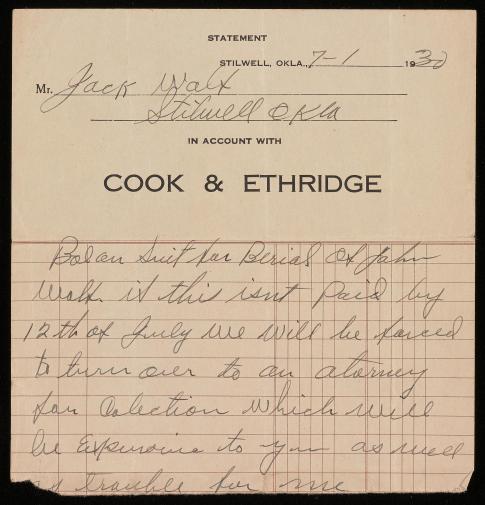 STATEMENT
STILWELL, OKLA., 7-1 1930
Mr. Jack Walx
Stilwell Okla
IN ACCOUNT WITH
COOK & ETHRIDGE
Bol on Suit for Berial of John
Walx if this isnt Paid by
12th of July We will be forced
to turn over to an atorney
for Colection which will
be Expensive to you as well
as trouble for me